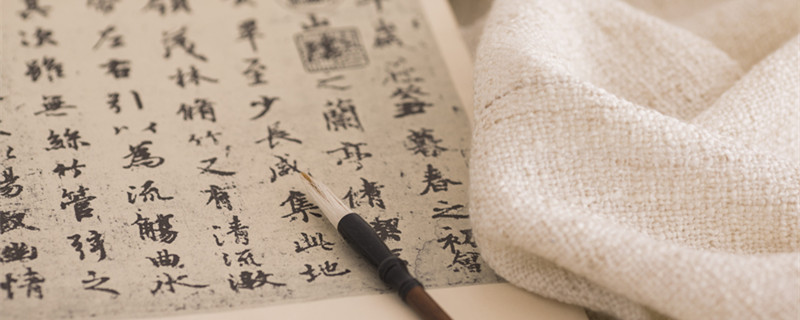 年歲在癸丑暮春之初會
山陰之蘭亭脩禊
畢至少長咸集此地
領茂林脩竹又有清流激
左右引以為流觴曲水
其次雖無絲竹管弦之
暢敘幽情